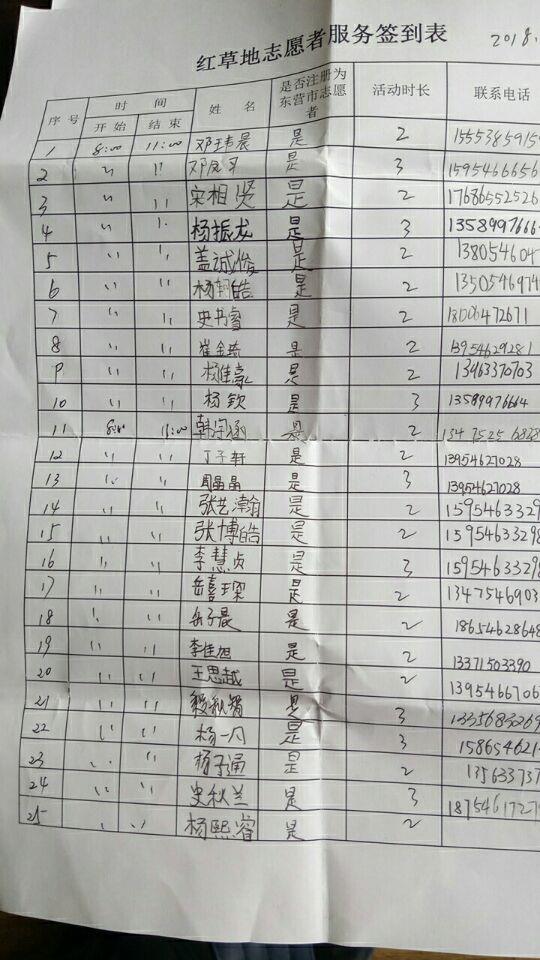 红草地志愿者服务签到表 2018.
序号 时间 姓名 是否注册为东营市志愿者 活动时长 联系电话
开始 结束
1 8:00 11:00 邓玮晨 是 2 1555385915
2 〃 〃 是 3 1595466656
3 〃 〃 宋相贤 是 2 17686552526
4 〃 〃 杨振龙 是 3 1358997666
5 〃 〃 盖诚俊 是 2 1380546047
6 〃 〃 杨轲皓 是 2 1350546974
7 〃 〃 史书睿 是 2 18006472671
8 〃 〃 崔金琦 是 2 13954629281
9 〃 〃 杨佳豪 是 2 13963370703
10 〃 〃 杨钦 是 3 13589976664
11 8:00 11:00 韩宇涵 是 2 13475256828
12 〃 〃 丁子轩 是 2 13954627028
13 〃 〃 周晶晶 是 3 13954627028
14 〃 〃 张艺瀚 是 2 15954633298
15 〃 〃 张博皓 是 2 15954633298
16 〃 〃 李慧贞 是 3 15954633298
17 〃 〃 岳喜琛 是 2 1347546903
18 〃 〃 岳子晨 是 2 18654628648
19 〃 〃 李佳旭 是 2 13371503390
20 〃 〃 王思越 是 2 1395466706
21 〃 〃 是 3 1335683269
22 〃 〃 杨一凡 是 3 158654621
23 〃 〃 杨子涵 是 2 13563373
24 〃 〃 史秋兰 是 3 1875461727
25 〃 〃 杨熙睿 是 2